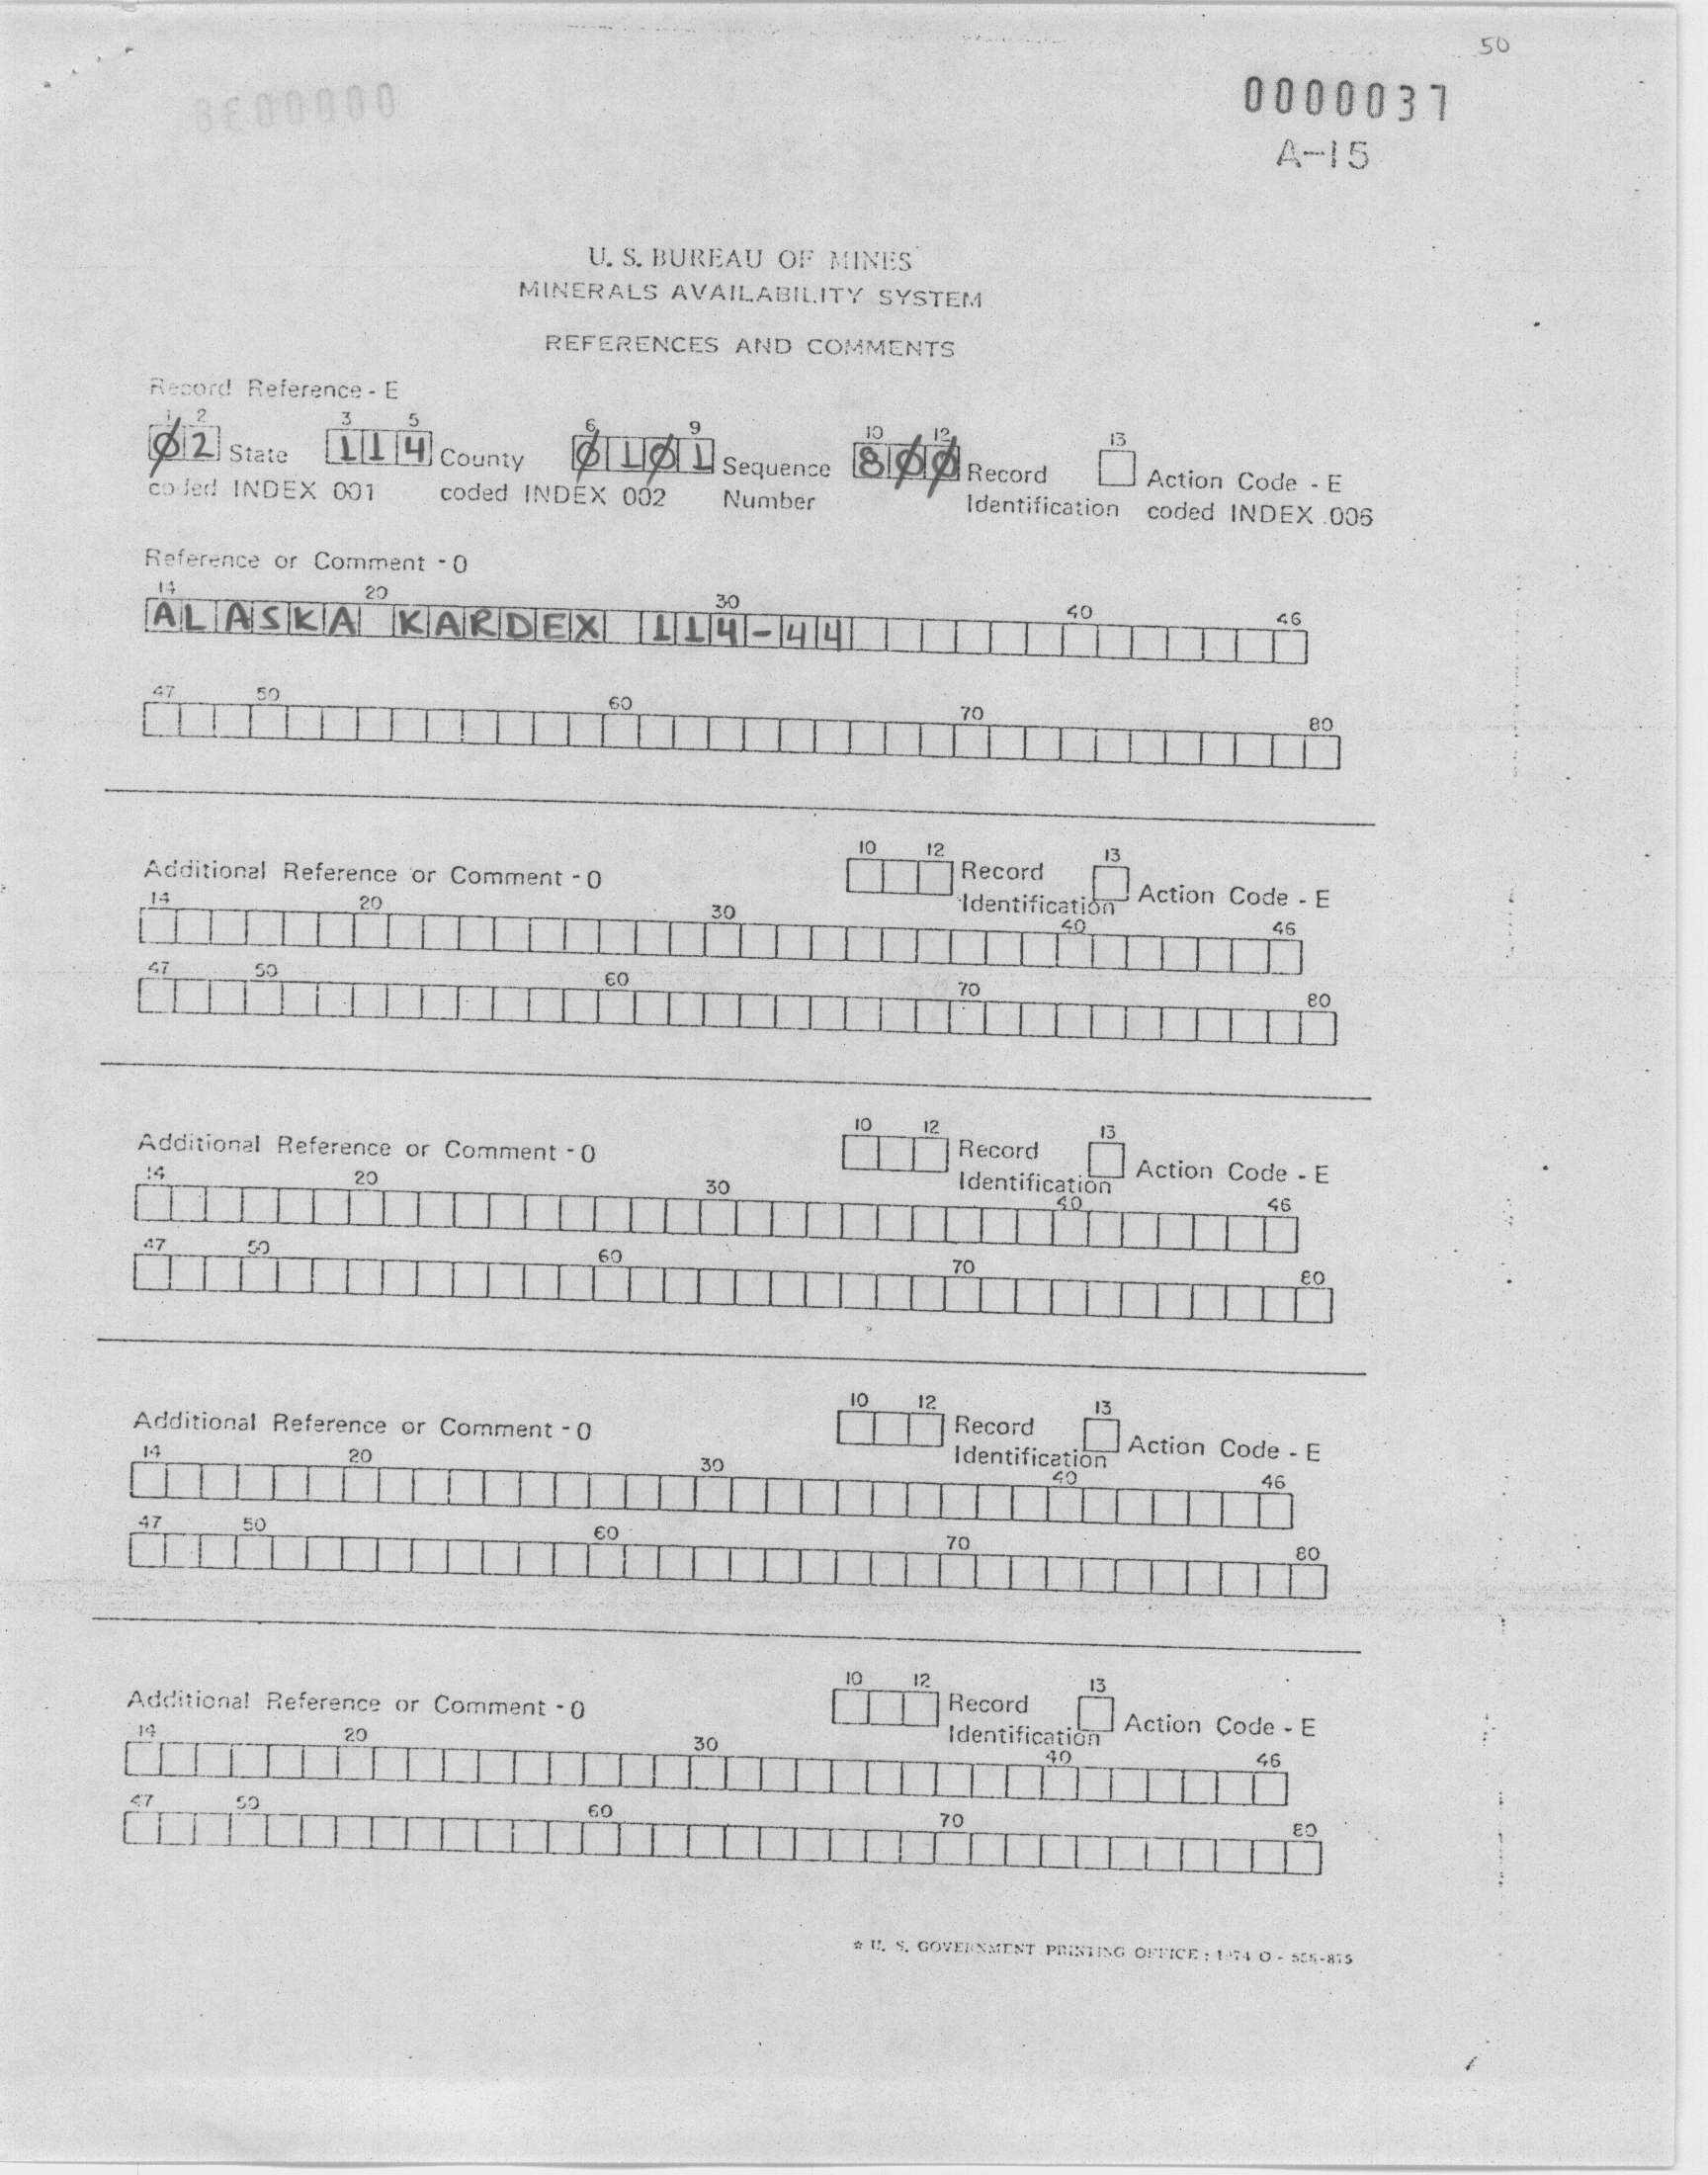 50
0000037
A-15
U. S. BUREAU OF MINES
MINERALS AVAILABILITY SYSTEM
REFERENCES AND COMMENTS
Record Reference - E
1 2 3 5 6 9 10 12 13
Ø2 State 114 County Ø1Ø1 Sequence 8ØØ Record Action Code - E
coded INDEX 001 coded INDEX 002 Number Identification coded INDEX 006
Reference or Comment - O
14 20 30 40 46
ALASKA KARDEX 114-44
47 50 60 70 80
10 12 13
Additional Reference or Comment - O Record Action Code - E
Identification
14 20 30 40 46
47 50 60 70 80
10 12 13
Additional Reference or Comment - O Record Action Code - E
Identification
14 20 30 40 46
47 50 60 70 80
10 12 13
Additional Reference or Comment - O Record Action Code - E
Identification
14 20 30 40 46
47 50 60 70 80
10 12 13
Additional Reference or Comment - O Record Action Code - E
Identification
14 20 30 40 46
47 50 60 70 80
☆ U. S. GOVERNMENT PRINTING OFFICE : 1974 O -